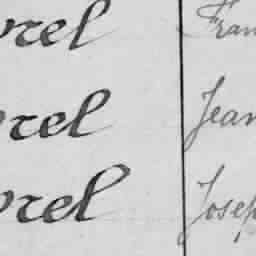 rel Fran
rel Jean
rel Josep